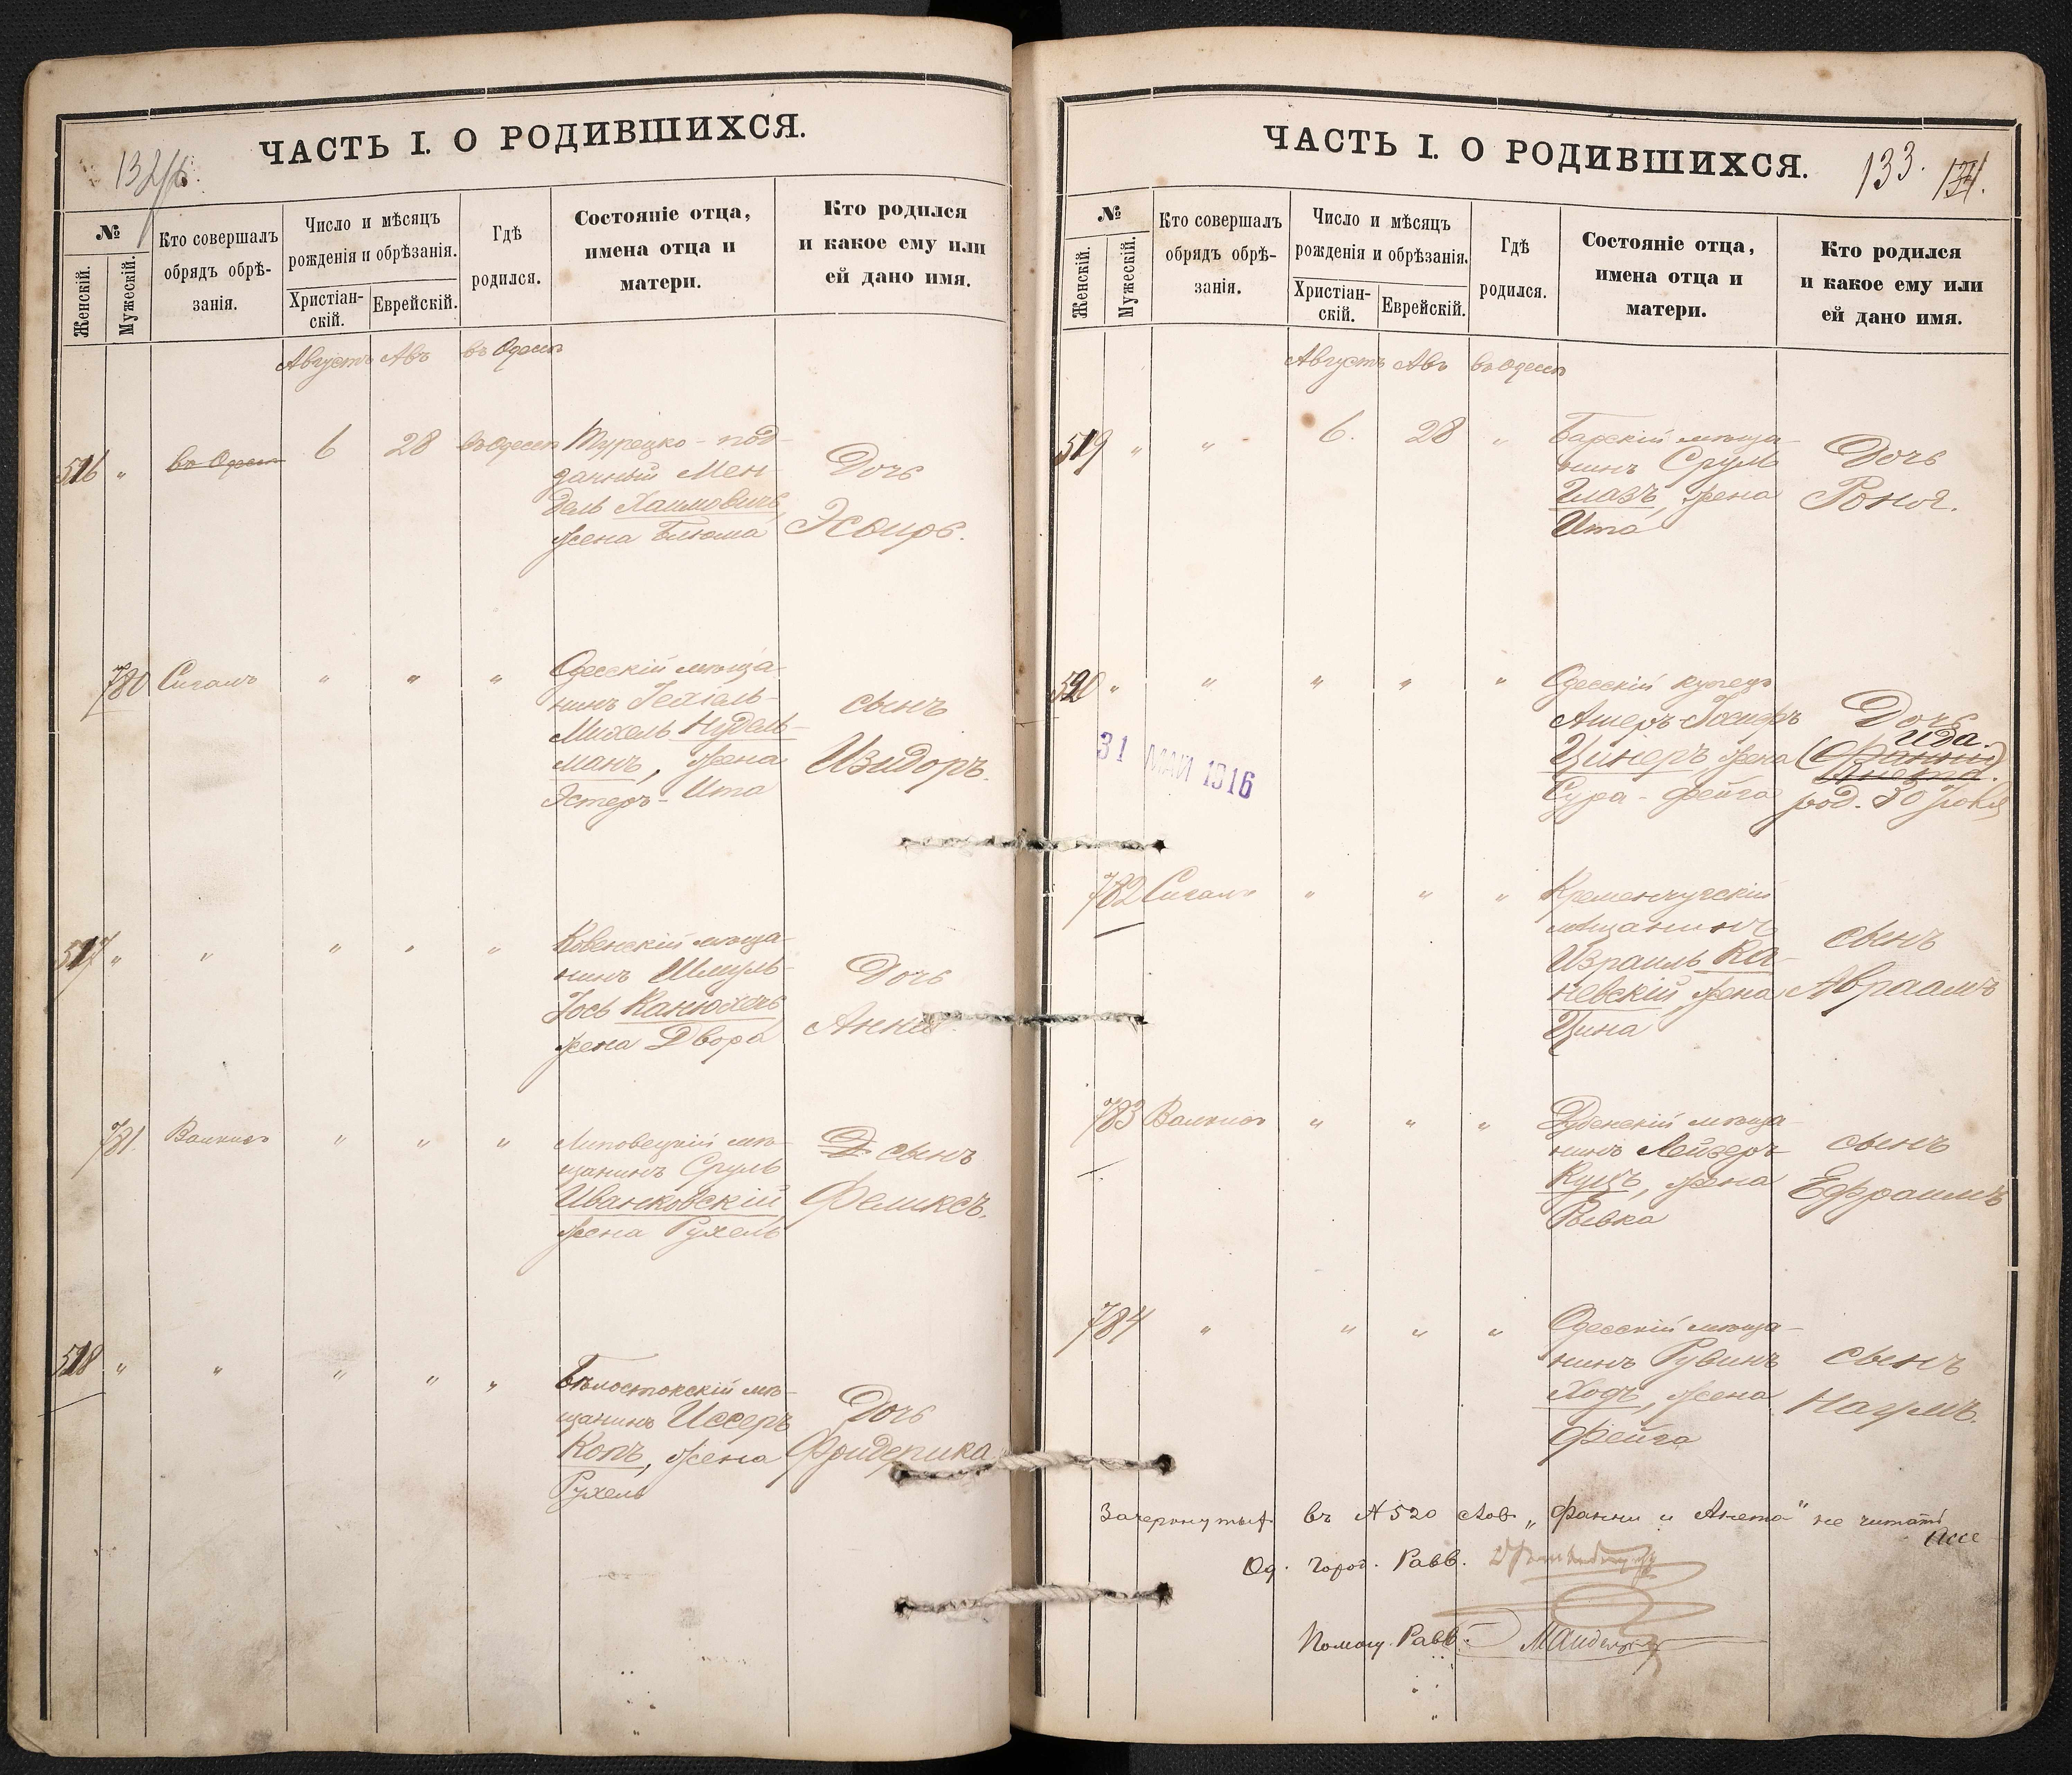 ЧАСТЬ I. О РОДИВШИХСЯ.
№
Женскій.
Мужескій.
Кто совершалъ
обрядъ обрѣ-
занія.
Число и мѣсяцъ
рожденія и обрѣзанія.
Христіан-
скій.
Еврейскій.
Гдѣ
родился.
Состояніе отца,
имена отца и
матери.
Кто родился
и какое ему или
ей дано имя.
Августъ Авъ въ Одессѣ
516 " въ Одессѣ 6 28 въ Одессѣ
Турецко-под-
данный Мен-
дель Хаимовичъ,
жена Блюма
Дочь
Эсѳирь.
780 Сигалъ " " "
Одесскій мѣща-
нинъ Іехіель-
Михель Нудель-
манъ, жена
Эстеръ-Ита
сынъ
Изидоръ.
517 " " " " "
Ковенскій мѣща-
нинъ Шмуль-
Іось Канюхехъ
жена Двора
Дочь
Анна.
781. " " "
Липовецкій мѣ-
щанинъ Сруль
Иванковскій
жена Рухель
Д сынъ
Феликсъ.
518 " " " " "
Бѣлостокскій мѣ-
щанинъ Иссеръ
Копъ, жена
Рухель
Дочь
Фридерика
ЧАСТЬ I. О РОДИВШИХСЯ.
133.
№
Женскій.
Мужескій.
Кто совершалъ
обрядъ обрѣ-
занія.
Число и мѣсяцъ
рожденія и обрѣзанія.
Христіан-
скій.
Еврейскій.
Гдѣ
родился.
Состояніе отца,
имена отца и
матери.
Кто родился
и какое ему или
ей дано имя.
Августъ Авъ въ Одессѣ
519 " " 6. 28 "
Барскій мѣща-
нинъ Сруль
Глазъ, жена
Ита
Дочь
Роня.
520 " " " " "
Одесскій купецъ
Ашеръ-Іосифъ
Цинеръ жена
Сура-Фейга
Дочь
Ида.
(Фанни)
Анета.
род. 30 Іюля
31 МАЙ 1916
782 Сигалъ " " "
Кременчугскій
мѣщанинъ
Израиль Ка-
невскій, жена
Цина
сынъ
Авраамъ
783 " " "
Дубенскій мѣща-
нинъ Лейзеръ
Куцъ, жена
Ривка
сынъ
Ефраимъ
784 " " " "
Одесскій мѣща-
нинъ Рувинъ
Ходъ, жена
Фейга
сынъ
Наумъ.
Зачеркнутыя въ № 520 слов. „Фанни и Анета" не читать
Од. Город. Равв.
Помощ. Равв.